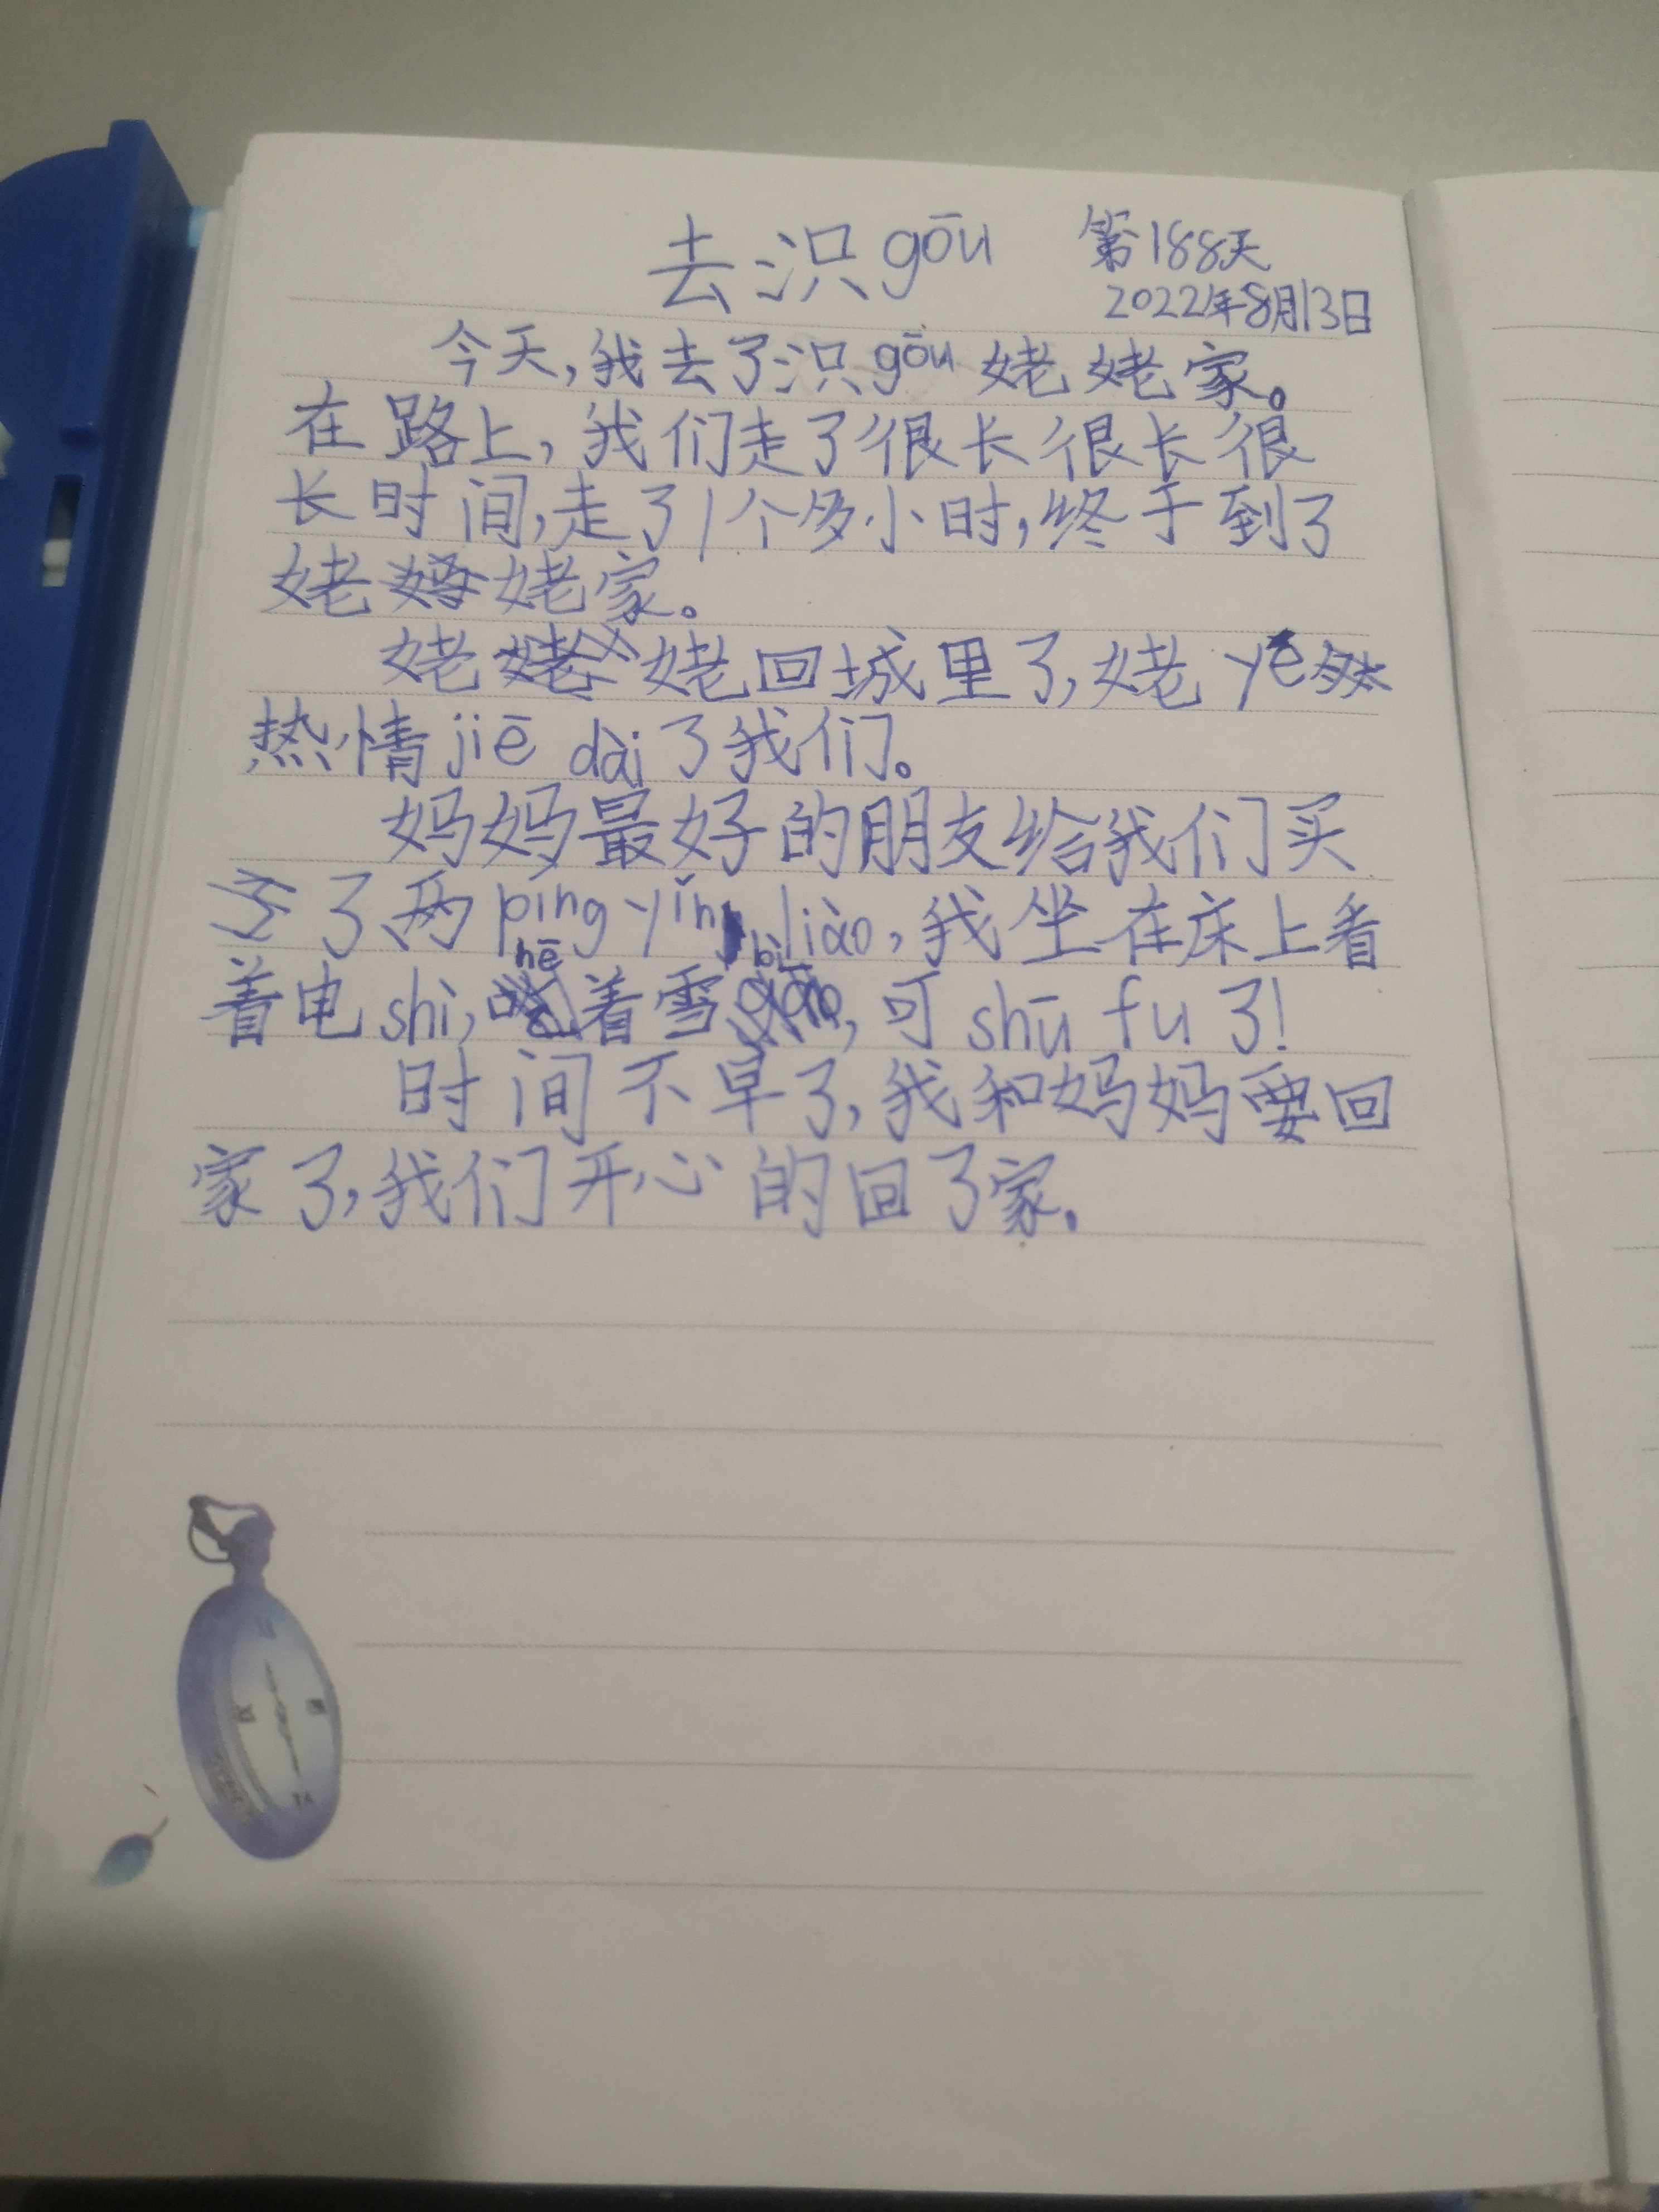 去识gōu
第188天
2022年8月13日
今天,我去了识gōu姥姥家。
在路上,我们走了很长很长很
长时间,走了1个多小时,终于到了
姥姥家。
姥姥回城里了,姥yé
热情jiē dài了我们。
妈妈最好的朋友给我们买
了两píng yǐn liào,我坐在床上看
着电shì,hē着雪bì,可shū fu了!
时间不早了,我和妈妈要回
家了,我们开心的回了家.